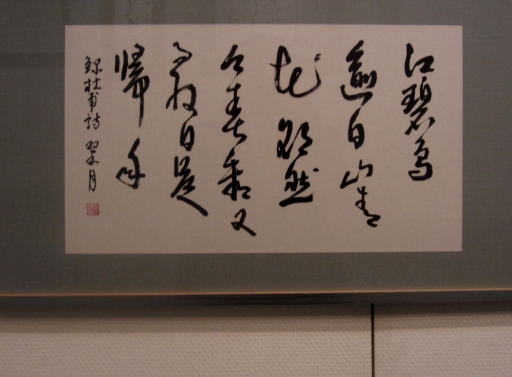 江碧鳥
逾白山青
花欲然
今春看又
過何日是
歸年
録杜甫詩 翠月